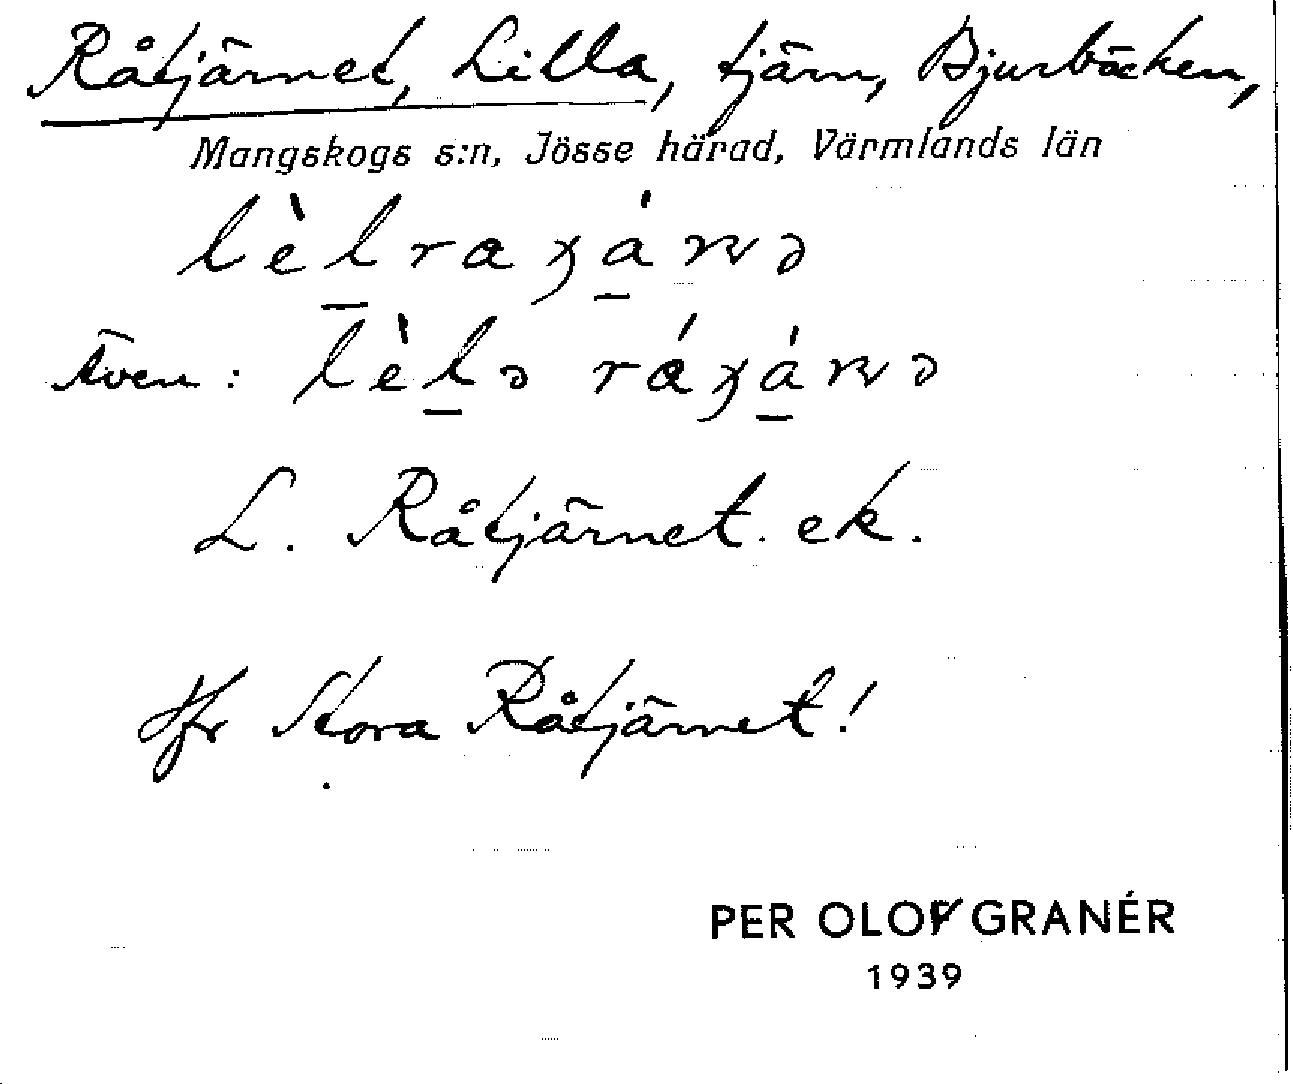 Råtjärnet, Lilla, tjärn, Bjurbäcken,
Mangskogs s:n, Jösse härad, Värmlands län
Även:
L. Råtjärnet. ek.
Jfr Stora Råtjärnet!
PER OLOF GRANÉR
1939